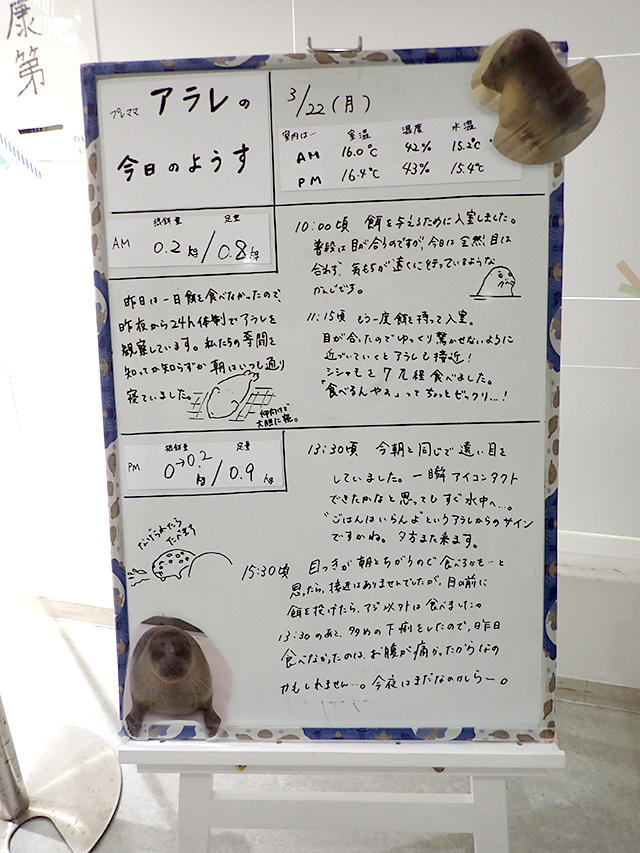 康第一
プレママ アラレの
今日のようす
3/22(月)
室内は… 室温 湿度 水温
AM 16.0℃ 42% 15.2℃
PM 16.4℃ 43% 15.4℃
AM
摂餌量 定量
0.2kg/0.8kg
昨日は一日餌を食べなかったので、
昨夜から24h体制でアラレを
観察しています。私たちの奮闘を
知ってか知らずか朝はいつも通り
寝ていました。
仰向けで
大胆に寝。
10:00頃 餌を与えるために入室しました。
普段は目が合うのですが、今日は全然目は
合わず、気もちが遠くに行っているような
かんじです。
11:15頃 もう一度餌を持って入室。
目が合ったのでゆっくり驚かせないように
近づいていくとアラレも接近!
シシャモを7尾程食べました。
「食べるんやぁ」ってちょっとビックリ…!
PM
摂餌量 定量
0→0.2kg/0.9kg
13:30頃 今朝と同じで遠い目を
していました。一瞬アイコンタクト
できたかなと思ってもすぐ水中へ…。
"ごはんはいらんよ"というアラレからのサイン
ですかね。夕方また来ます。
なげられたら
たべまう
15:30頃 目つきが朝とちがうので食べるかも…と
思ったら、接近はありませんでしたが、目の前に
餌を投げたら、アジ以外は食べました。
13:30のあと、多めの下痢をしたので、昨日
食べなかったのは、お腹が痛かったからなの
かもしれません…。今夜はまだなのかしらー。